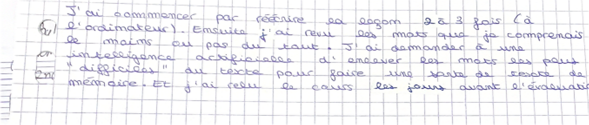 J'ai commencer par réécrire la leçon 2 à 3 fois (à
l'ordinateur). Ensuite j'ai revu les mots que je comprenais
le moins ou pas du tout. J'ai demander à une
intelligence artificielle d'enlever les mots les plus
"difficiles" du texte pour faire une sorte de texte de
mémoire. Et j'ai relu le cours les jours avant l'évaluation